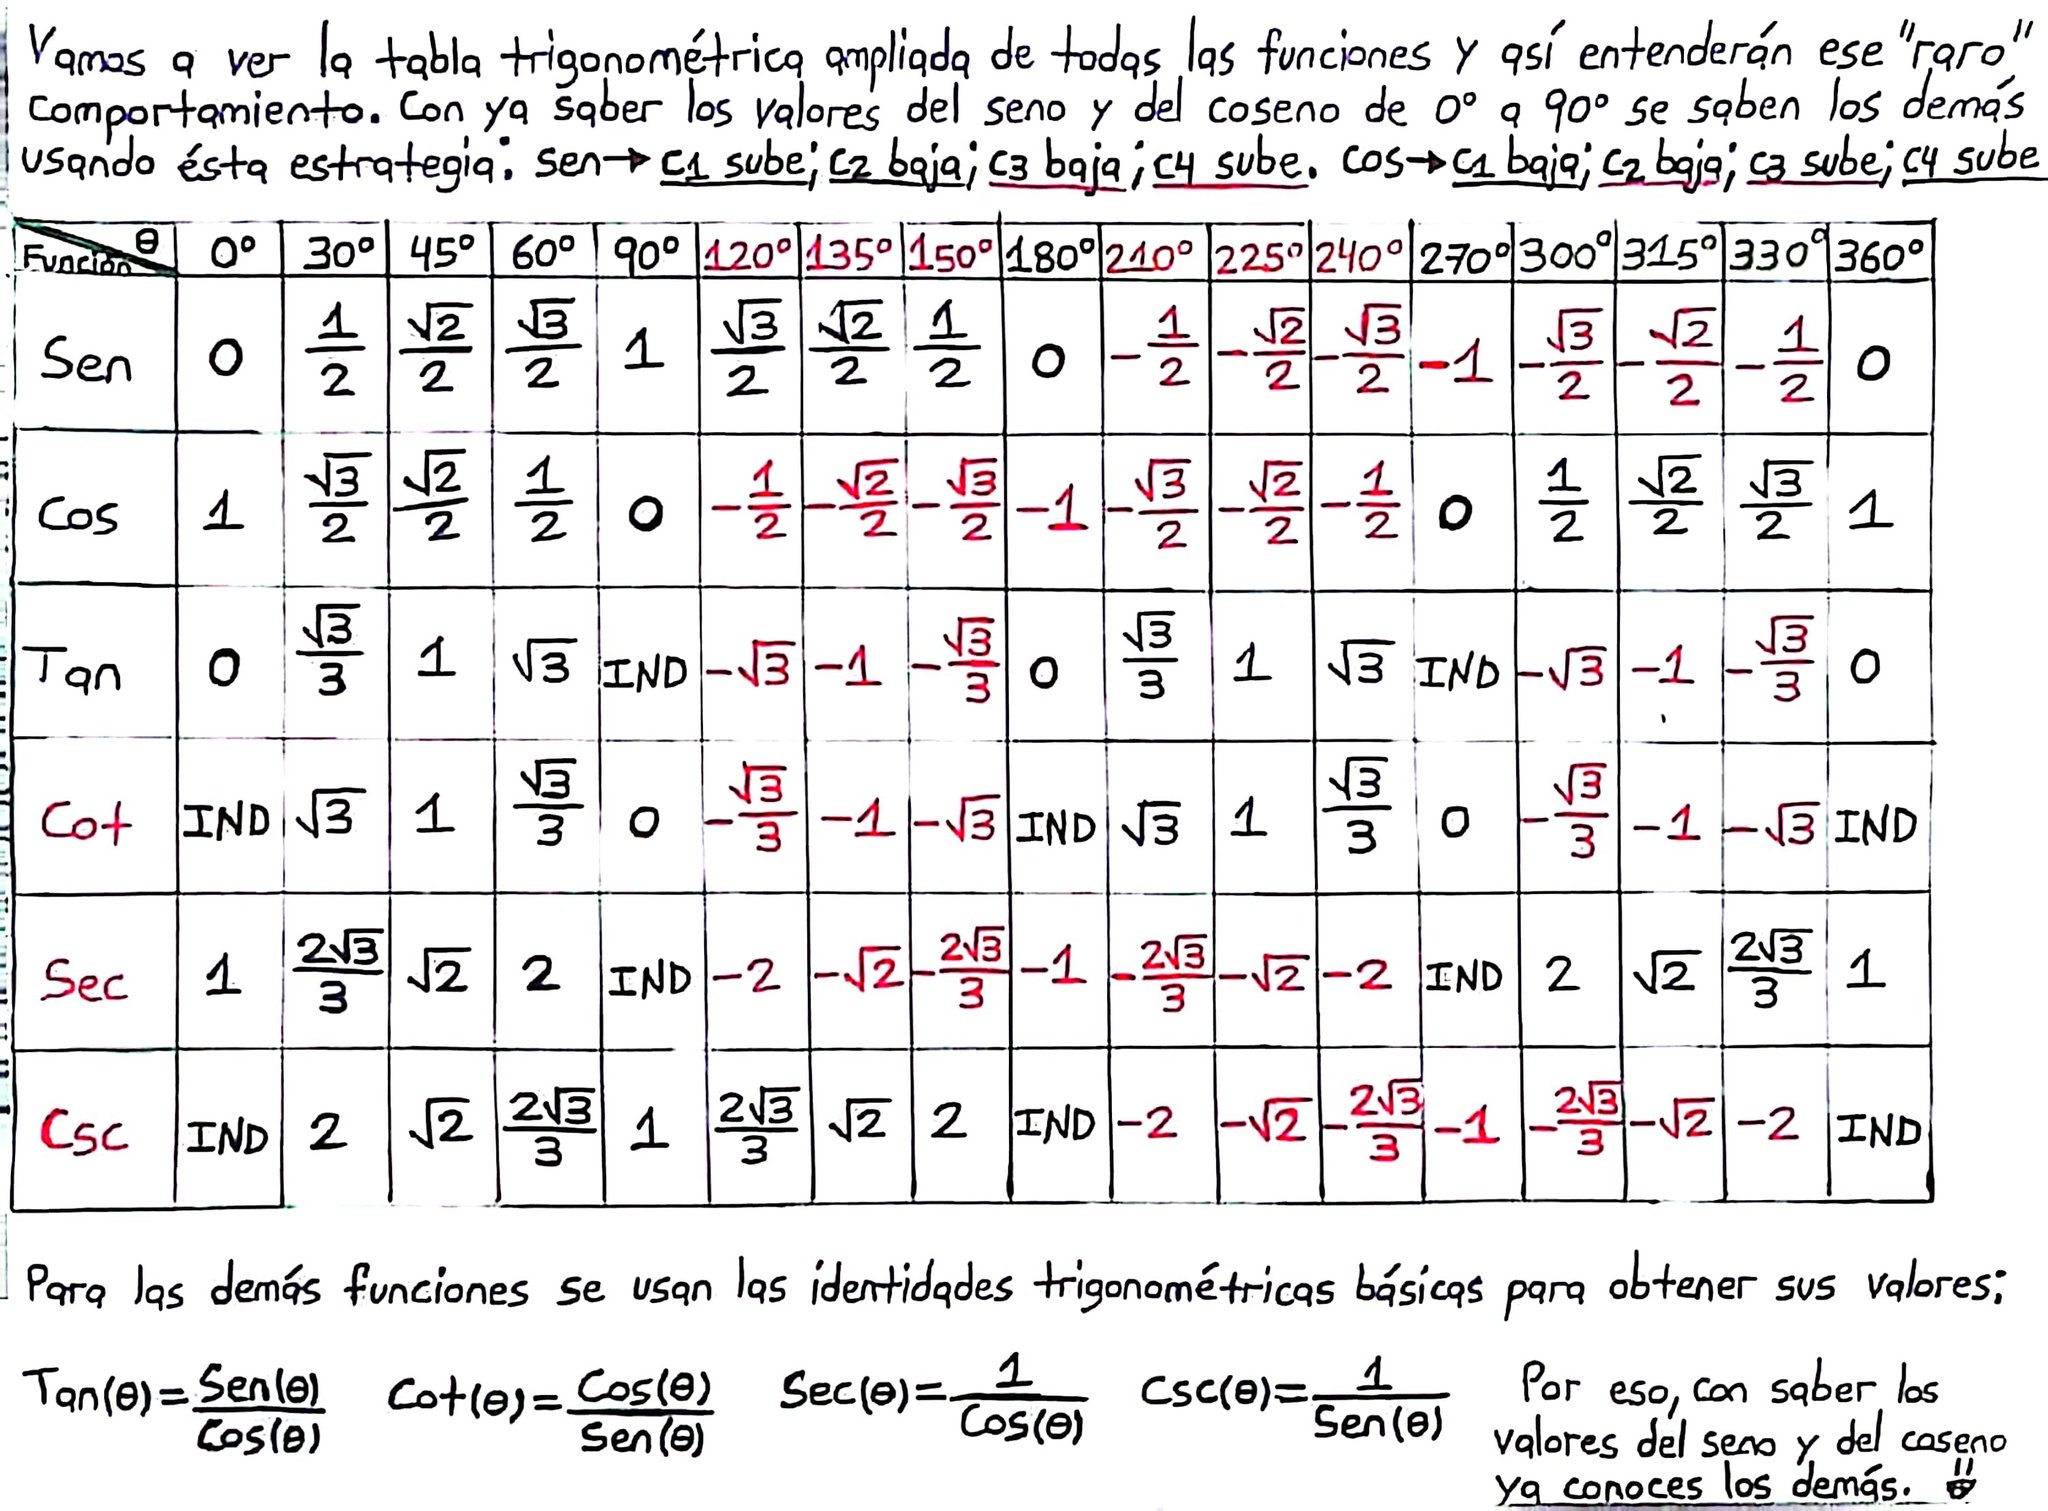 Vamos a ver la tabla trigonométrica ampliada de todas las funciones y así entenderán ese "raro"
comportamiento. Con ya saber los valores del seno y del coseno de 0° a 90° se saben los demás
usando ésta estrategia: sen→ C1 sube; C2 baja; C3 baja; C4 sube. cos→ C1 baja; C2 baja; C3 sube; C4 sube
Función θ 0° 30° 45° 60° 90° 120° 135° 150° 180° 210° 225° 240° 270° 300° 315° 330° 360°
Sen 0 1/2 √2/2 √3/2 1 √3/2 √2/2 1/2 0 -1/2 -√2/2 -√3/2 -1 -√3/2 -√2/2 -1/2 0
Cos 1 √3/2 √2/2 1/2 0 -1/2 -√2/2 -√3/2 -1 -√3/2 -√2/2 -1/2 0 1/2 √2/2 √3/2 1
Tan 0 √3/3 1 √3 IND -√3 -1 -√3/3 0 √3/3 1 √3 IND -√3 -1 -√3/3 0
Cot IND √3 1 √3/3 0 -√3/3 -1 -√3 IND √3 1 √3/3 0 -√3/3 -1 -√3 IND
Sec 1 2√3/3 √2 2 IND -2 -√2 -2√3/3 -1 -2√3/3 -√2 -2 IND 2 √2 2√3/3 1
Csc IND 2 √2 2√3/3 1 2√3/3 √2 2 IND -2 -√2 -2√3/3 -1 -2√3/3 -√2 -2 IND
Para las demás funciones se usan las identidades trigonométricas básicas para obtener sus valores:
Tan(θ)=Sen(θ)/Cos(θ) Cot(θ)=Cos(θ)/Sen(θ) Sec(θ)=1/Cos(θ) Csc(θ)=1/Sen(θ)
Por eso, con saber los
valores del seno y del coseno
ya conoces los demás.